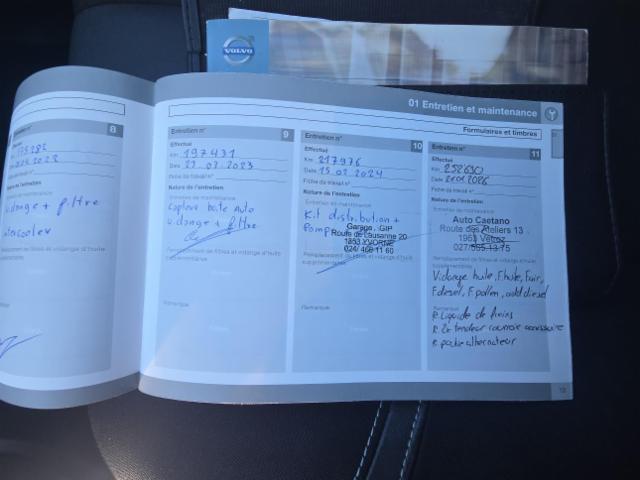 VOLVO
01 Entretien et maintenance
Formulaires et timbres
8
Vidange + filtre
Entretien n° 9
Effectué
Km 197431
Date 27.07.2023
Fiche de travail n°
Nature de l'entretien
Entretien de maintenance
Capteur boite Auto
vidange + filtre
Remplacement de filtres et vidange d'huile
supplémentaires
Remarque
Entretien n° 10
Effectué
Km 217976
Date 15.02.2024
Fiche de travail n°
Nature de l'entretien
Entretien de maintenance
Kit distribution +
Pompe
Garage GIP
Route de Lausanne 20
1853 YVORNE
024/ 466 11 60
Remplacement de filtres et vidange d'huile
supplémentaires
Remarque
Entretien n° 11
Effectué
Km 252690
Date
Fiche de travail n°
Nature de l'entretien
Entretien de maintenance
Auto Caetano
Route des Ateliers 13
1963 Vétroz
027/ 565 13 75
Remplacement de filtres et vidange d'huile
supplémentaires
Vidange huile, F.huile, F.air,
F.diesel, F.pollen, add diesel
Remarque
R Liquide de freins
R Le tendeur courroie accessoire
R poulie alternateur